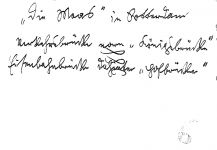 „Die Maas" in Rotterdam
Verkehrsbrücke vorn „Königsbrücke"
Eisenbahnbrücke dahinter „Hofbrücke"